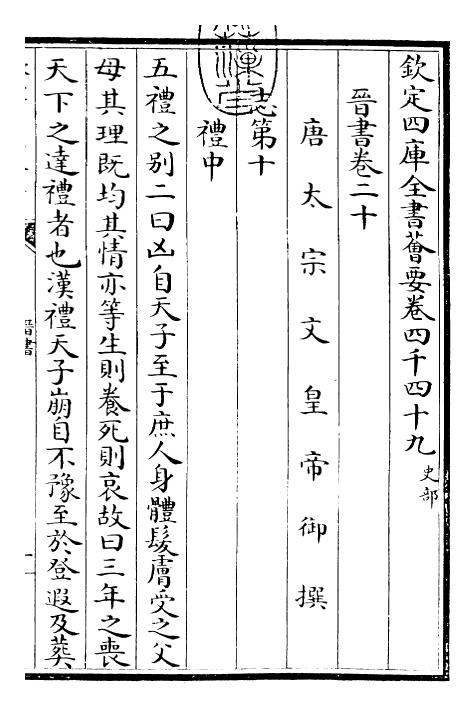 欽定四庫全書薈要卷四千四十九史部
晉書卷二十
唐太宗文皇帝御撰
志第十
禮中
五禮之别二曰凶自天子至于庶人身體髮膚受之父
母其理既均其情亦等生則養死則哀故曰三年之喪
天下之達禮者也漢禮天子崩自不豫至於登遐及葬
晉書